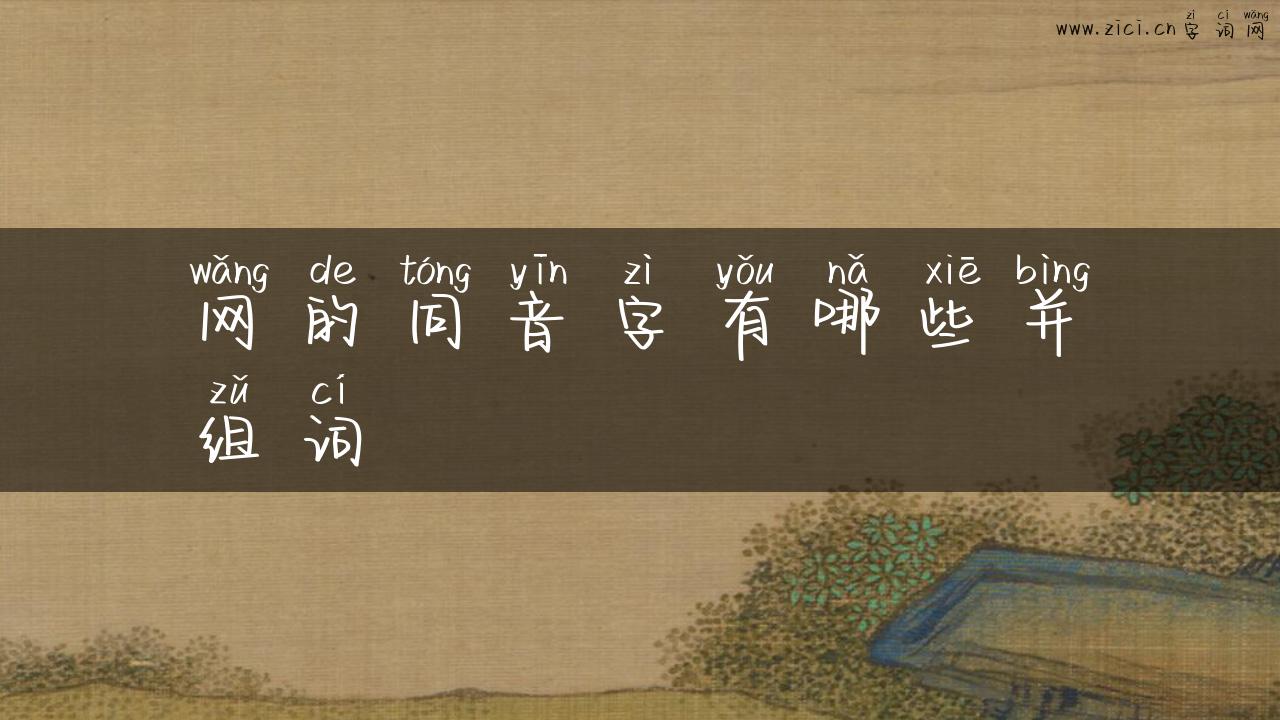 zì cí wǎng
www.zici.cn字词网
wǎng de tóng yīn zì yǒu nǎ xiē bìng
网的同音字有哪些并
zǔ cí
组词